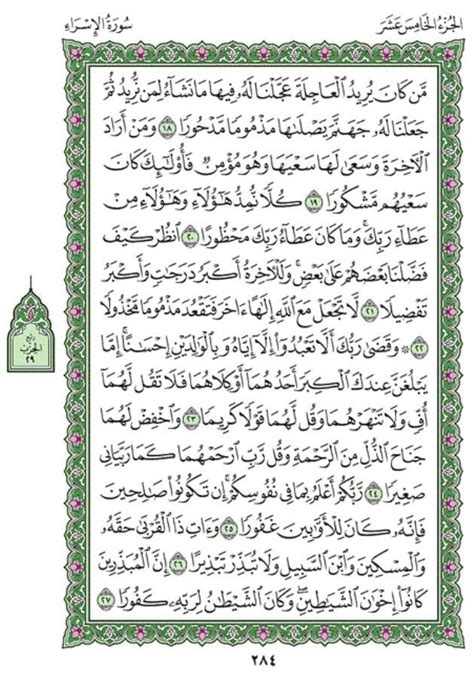 سُورَةُ الإِسْرَاءِ
الجُزْءُ الخَامِسَ عَشَرَ
مَّن كَانَ يُرِيدُ ٱلْعَاجِلَةَ عَجَّلْنَا لَهُۥ فِيهَا مَا نَشَآءُ لِمَن نُّرِيدُ ثُمَّ
جَعَلْنَا لَهُۥ جَهَنَّمَ يَصْلَىٰهَا مَذْمُومًا مَّدْحُورًا ١٨ وَمَنْ أَرَادَ
ٱلْأَخِرَةَ وَسَعَىٰ لَهَا سَعْيَهَا وَهُوَ مُؤْمِنٌ فَأُو۟لَٰٓئِكَ كَانَ
سَعْيُهُم مَّشْكُورًا ١٩ كُلًّا نُّمِدُّ هَٰٓؤُلَآءِ وَهَٰٓؤُلَآءِ مِنْ
عَطَآءِ رَبِّكَ ۚ وَمَا كَانَ عَطَآءُ رَبِّكَ مَحْظُورًا ٢٠ ٱنظُرْ كَيْفَ
فَضَّلْنَا بَعْضَهُمْ عَلَىٰ بَعْضٍ ۚ وَلَلْأَخِرَةُ أَكْبَرُ دَرَجَٰتٍ وَأَكْبَرُ
تَفْضِيلًا ٢١ لَّا تَجْعَلْ مَعَ ٱللَّهِ إِلَٰهًا ءَاخَرَ فَتَقْعُدَ مَذْمُومًا مَّخْذُولًا
٢٢ ۞ وَقَضَىٰ رَبُّكَ أَلَّا تَعْبُدُوٓا۟ إِلَّآ إِيَّاهُ وَبِٱلْوَٰلِدَيْنِ إِحْسَٰنًا ۚ إِمَّا
يَبْلُغَنَّ عِندَكَ ٱلْكِبَرَ أَحَدُهُمَآ أَوْ كِلَاهُمَا فَلَا تَقُل لَّهُمَآ
أُفٍّ وَلَا تَنْهَرْهُمَا وَقُل لَّهُمَا قَوْلًا كَرِيمًا ٢٣ وَٱخْفِضْ لَهُمَا
جَنَاحَ ٱلذُّلِّ مِنَ ٱلرَّحْمَةِ وَقُل رَّبِّ ٱرْحَمْهُمَا كَمَا رَبَّيَانِى
صَغِيرًا ٢٤ رَّبُّكُمْ أَعْلَمُ بِمَا فِى نُفُوسِكُمْ ۚ إِن تَكُونُوا۟ صَٰلِحِينَ
فَإِنَّهُۥ كَانَ لِلْأَوَّٰبِينَ غَفُورًا ٢٥ وَءَاتِ ذَا ٱلْقُرْبَىٰ حَقَّهُۥ
وَٱلْمِسْكِينَ وَٱبْنَ ٱلسَّبِيلِ وَلَا تُبَذِّرْ تَبْذِيرًا ٢٦ إِنَّ ٱلْمُبَذِّرِينَ
كَانُوٓا۟ إِخْوَٰنَ ٱلشَّيَٰطِينِ ۖ وَكَانَ ٱلشَّيْطَٰنُ لِرَبِّهِۦ كَفُورًا ٢٧
ربع
الحزب
٢٩
٢٨٤